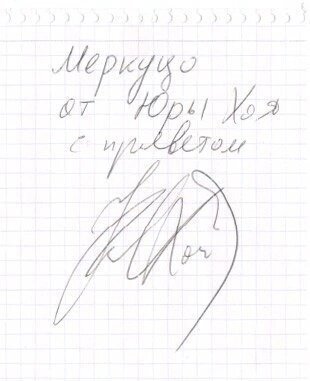 Меркуцо
от Юры Хоя
с приветом
Хой